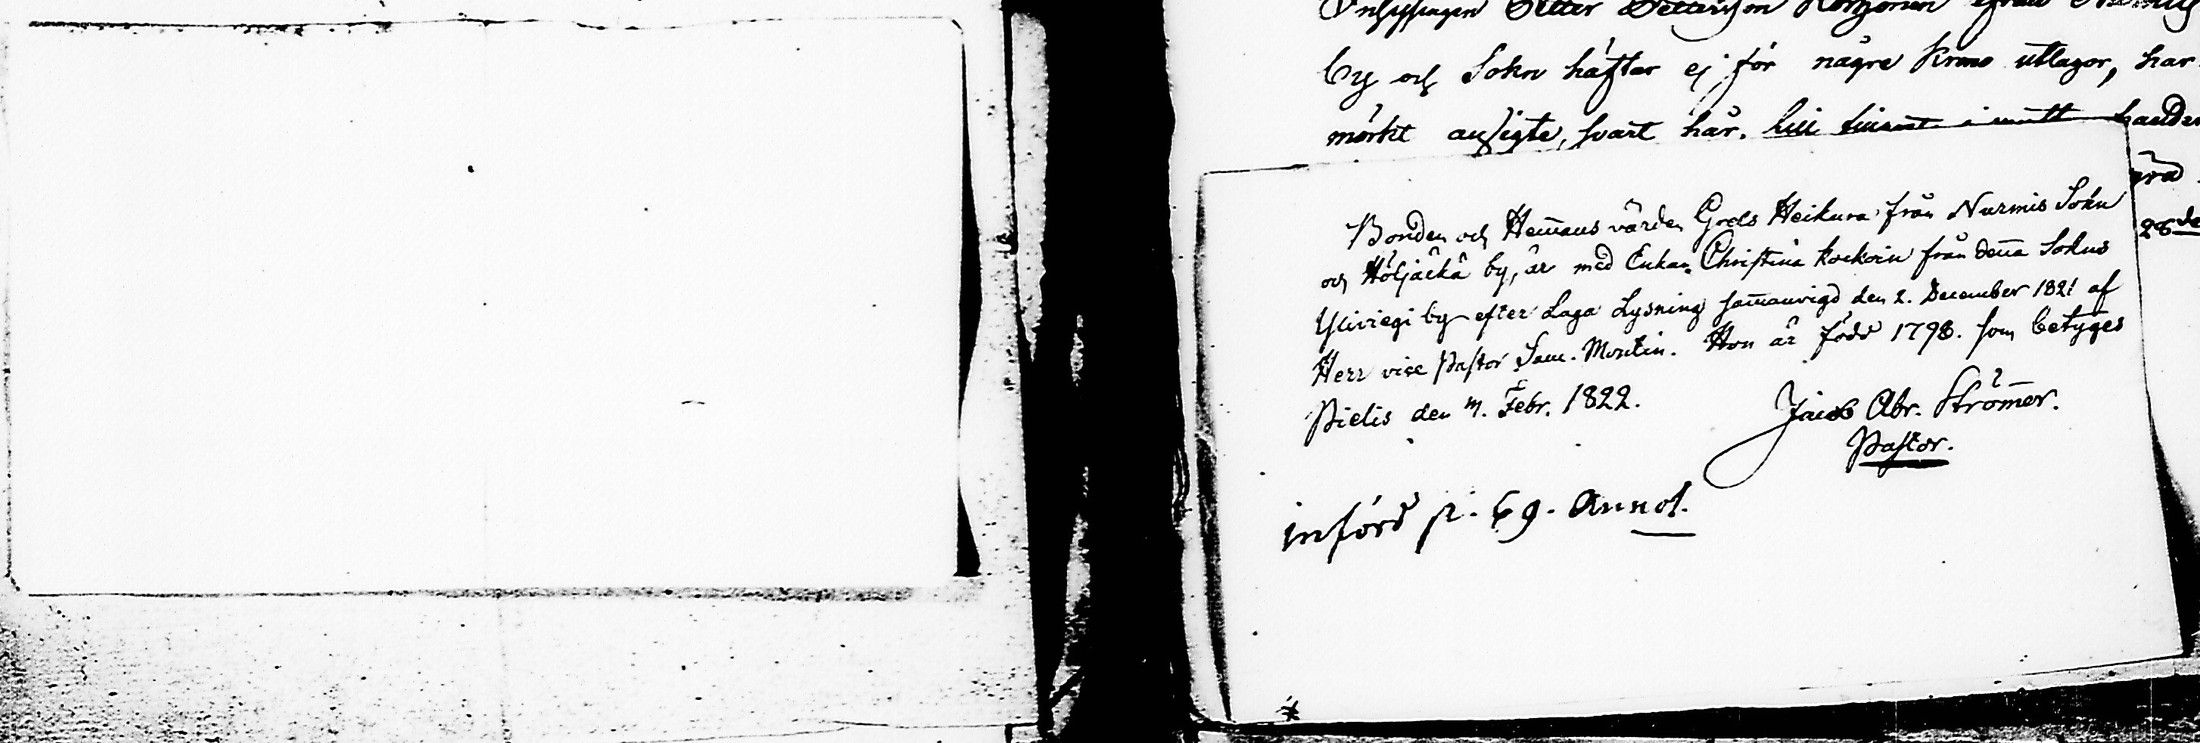 Petter Pettersson Korhonen ifrån
by och Sokn häftar ej för några Krono utlagor, har
mörkt ansigte, svart hår,
Bonden och Hem̄ans värden Grels Heikura från Nurmis Sokn
och Höljäkkä by, är med Enkan Christina Kockoin från den̄a Sokns
Yliviegi by efter Laga Lysning sam̄anvigd den 2. December 1821 af
Herr vice Pastor Sam. Montin. Hon är född 1798. som betyges
Pielis den Febr. 1822.
Jacob Abr. Ström̄er.
Pastor.
28de
införd p. 69. Annot.